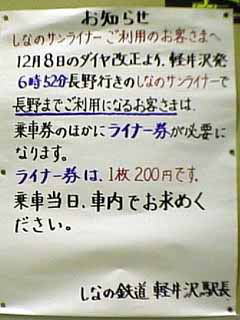 お知らせ
しなのサンライナーご利用のお客さまへ
12月8日のダイヤ改正より、軽井沢発
6時52分長野行きのしなのサンライナーで
長野までご利用になるお客さまは、
乗車券のほかにライナー券が必要に
なります。
ライナー券は、1枚200円です。
乗車当日、車内でお求めく
ださい。
しなの鉄道 軽井沢駅長